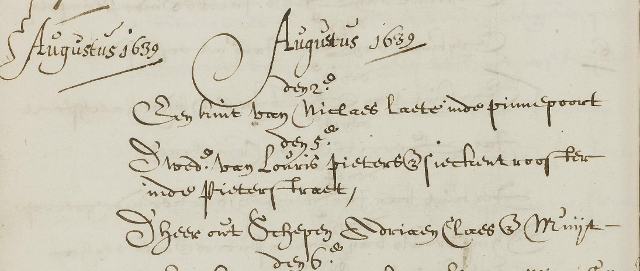 Augustus 1639
Augustus 1639
den 2e
Een kint van Niclaes Laete inde pinnepoort
den 5e
D wed.e van Louris pieters sieckentrooster
inde Pieterstraet,
D heer out Schepen Adriaen Claes Muijt
den 6e